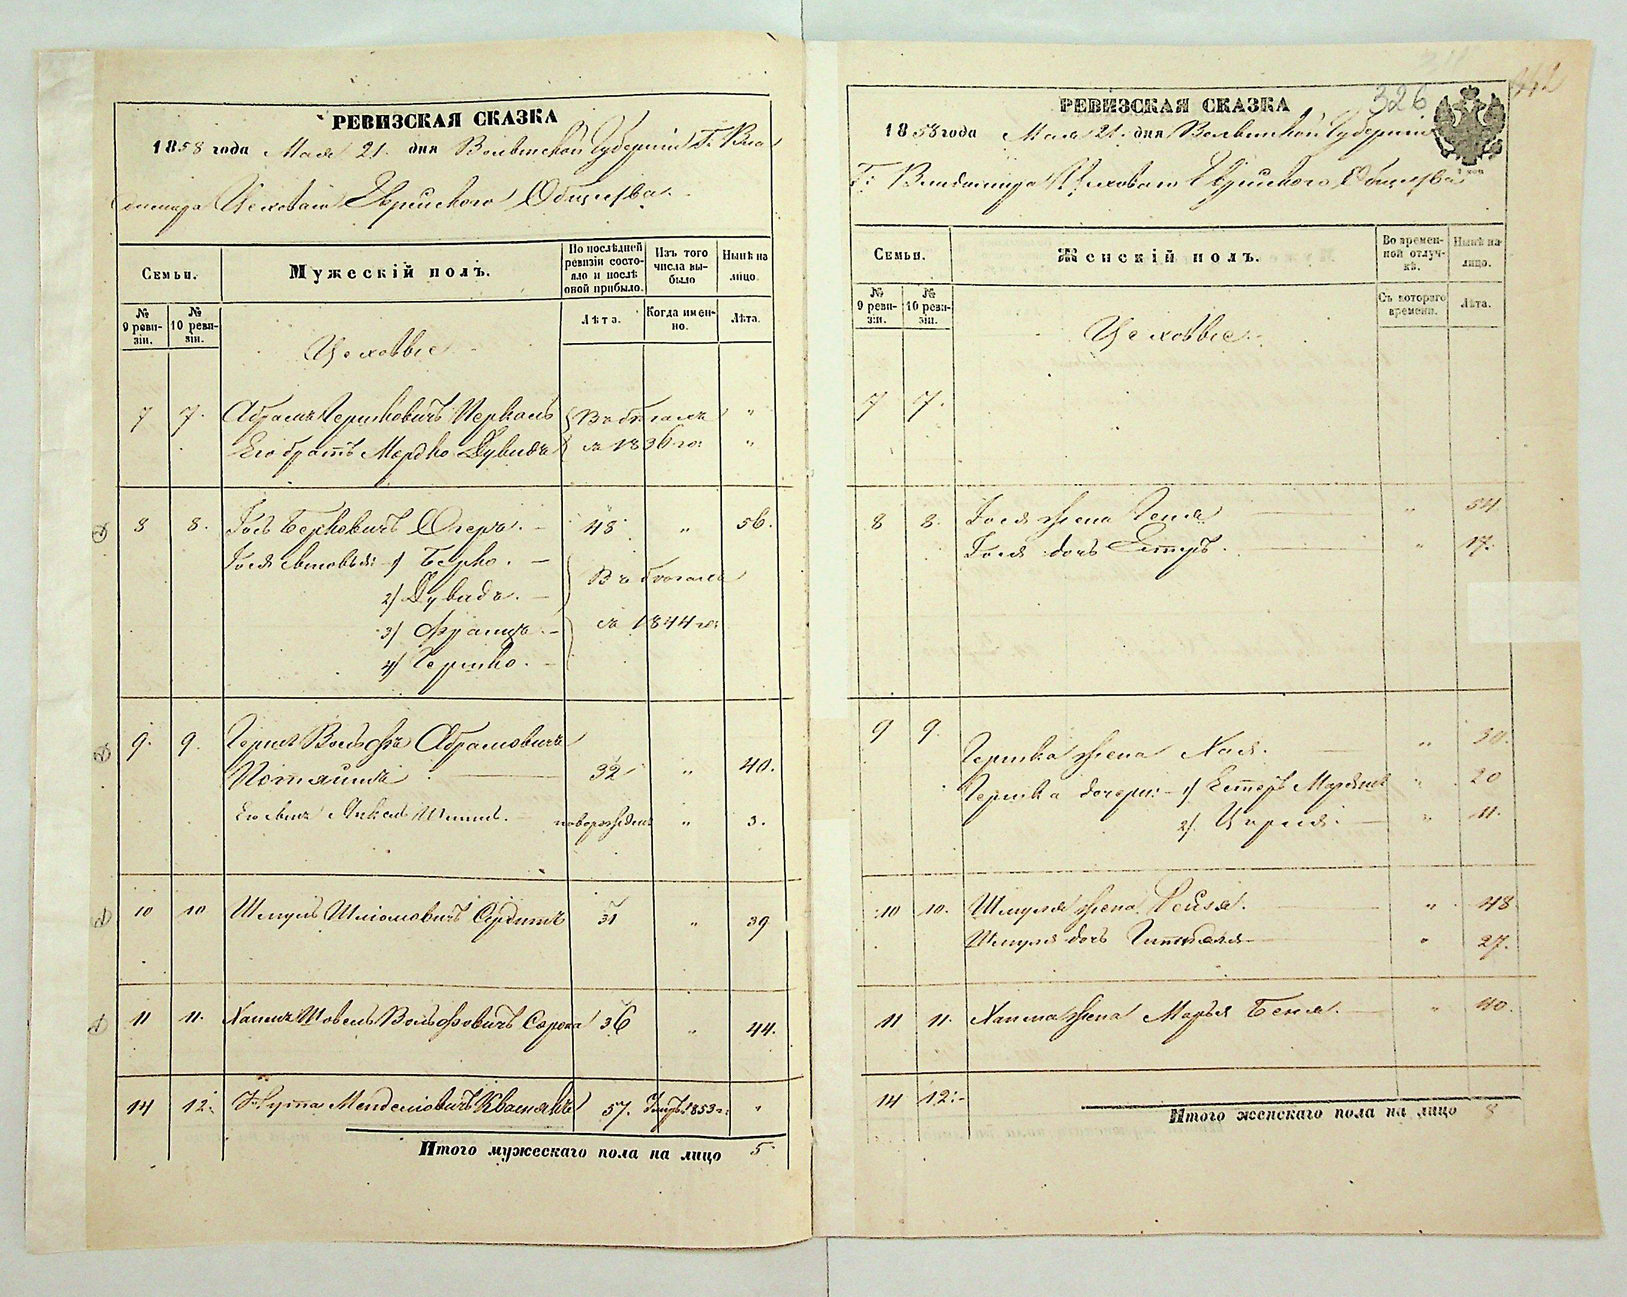 РЕВИЗСКАЯ СКАЗКА
1858 года Мая 21. дня Волынской Губерніи Г. Вла
димира Цеховаго Еврейского Общества.
Семьи.
Мужескій полъ.
По послѣдней ревизіи состояло и послѣ оной прибыло.
Изъ того числа выбыло
Нынѣ на лицо.
№ 9 ревизіи.
№ 10 ревизіи.
Лѣта.
Когда именно.
Лѣта.
Цеховые
7 7. Абрамъ Гершковичъ Перкаль Въ бѣгахъ "
Его братъ Мордко Дувидъ съ 1836 го "
8 8. Іось Берковичъ 48 " 56.
Іося сыновья: 1) Берко.
2) Дувидъ. Въ бѣгахъ
3) съ 1844 го
4) Гершко.
9. 9. Герша Вольфъ Абрамовичъ
32 " 40.
Его сынъ новорожденъ " 3.
10 10 Шмуль Шліомовичъ 31 " 39
11 11. Хаимъ Шовель Вольфовичъ Сорока 36 " 44.
14 12. Нута Менделіовичъ 57. Умръ 1853 г: "
Итого мужескаго пола на лицо 5
326
РЕВИЗСКАЯ СКАЗКА
1858 года Мая 21. дня Волынской Губерніи
Г: Владимира Цеховаго Еврейского Общества
Семьи.
Женскій полъ.
Во временной отлучкѣ.
Нынѣ на лицо.
№ 9 ревизіи.
№ 10 ревизіи.
Съ котораго времени.
Лѣта.
Цеховые.
7 7.
8 8. Іося жена Геня " 54
Іося дочь Естеръ. " 17.
9 9. Гершка жена Хая. " 39.
Гершка дочери: 1) Естеръ " 20
2) Ципра. " 11.
10 10. Шмуля жена Рейзя. " 48
Шмуля дочь " 27.
11 11. Хаима жена Марья Беня. " 40.
14 12.
Итого женскаго пола на лицо 8